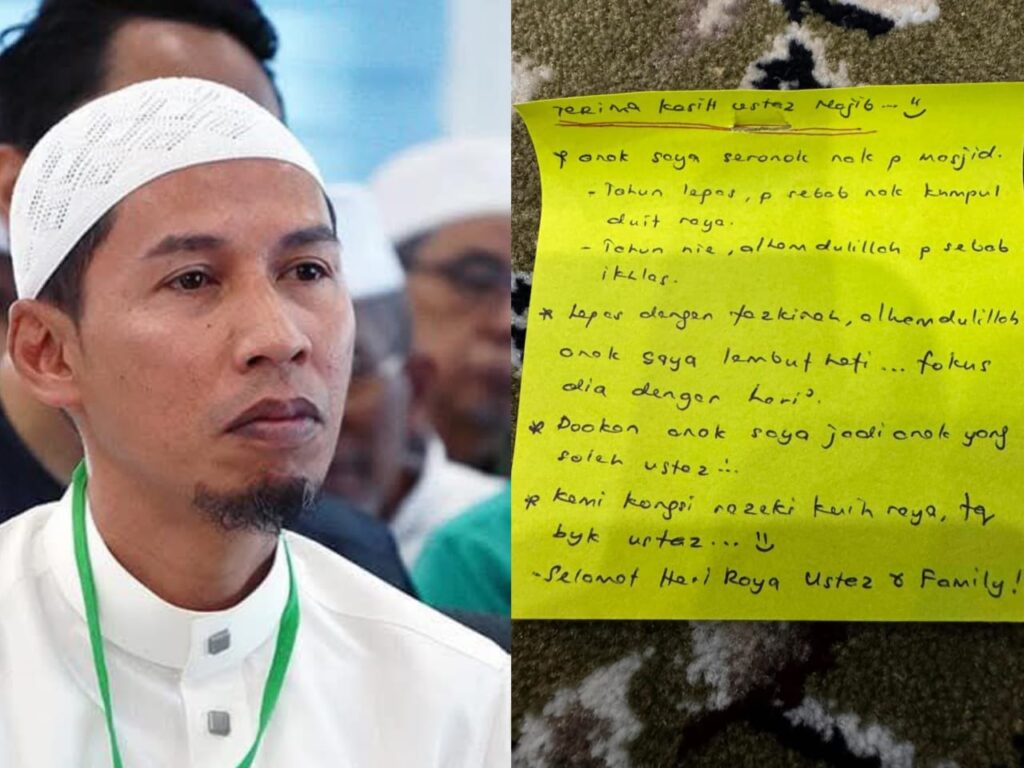 Terima kasih ustaz Najib... :)
* anak saya seronok nak p masjid.
- Tahun lepas, p sebab nak kumpul
duit raya.
- Tahun nie, alhamdulillah p sebab
ikhlas.
* Lepas dengar tazkirah, alhamdulillah
anak saya lembut hati... fokus
dia dengar hari².
* Doakan anak saya jadi anak yang
soleh ustaz...
* Kami kongsi razeki kuih raya, tq
byk ustaz... :)
- Selamat Hari Raya Ustaz & Family!